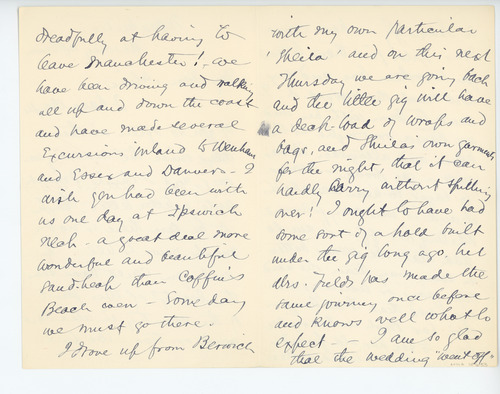 dreadfully at having to
leave Manchester! we
have been driving and walking
all up and down the coast
and have made several
Excursions inland to Wenham
and Essex and Danvers. I
wish you had been with
us one day at Ipswich
Neck - a great deal more
wonderful and beautiful
sand-beach than Coffin's
Beach even - Some day
we must go there.
I drove up from Berwick
with my own particular
'Sheila' and on this next
Thursday we are going back
and the little gig will have
a deck-load of wraps and
bags, and Sheila's own garments
for the night, that it can
hardly carry without spilling
over! I ought to have had
some sort of a hold built
under the gig long ago. but
Mrs. Fields has made the
same journey once before
and knows well what to
expect - - I am so glad
that the wedding "went off"